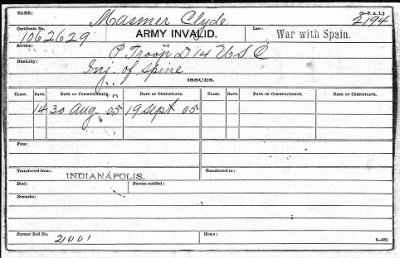 NAME: Masmer Clyde (3-P. A. I.)
Certificate No. 1062629 ARMY INVALID. Law: War with Spain. 2194
Service: P Troop D 14 U S C
Disability: Inj. of spine
ISSUES.
CLASS. RATE. DATE OF COMMENCEMENT. DATE OF CERTIFICATE. CLASS. RATE. DATE OF COMMENCEMENT. DATE OF CERTIFICATE.
14 30 Aug 05 19 Sept 05
Fees:
Transferred from INDIANAPOLIS.
Died: Bureau notified:
Remarks:
Former Roll No. 2001 Home: